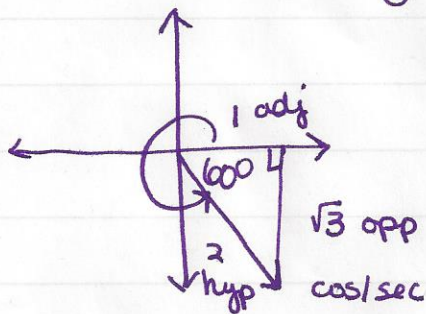 1 adj
60°
√3 opp
2
hyp
cos/sec